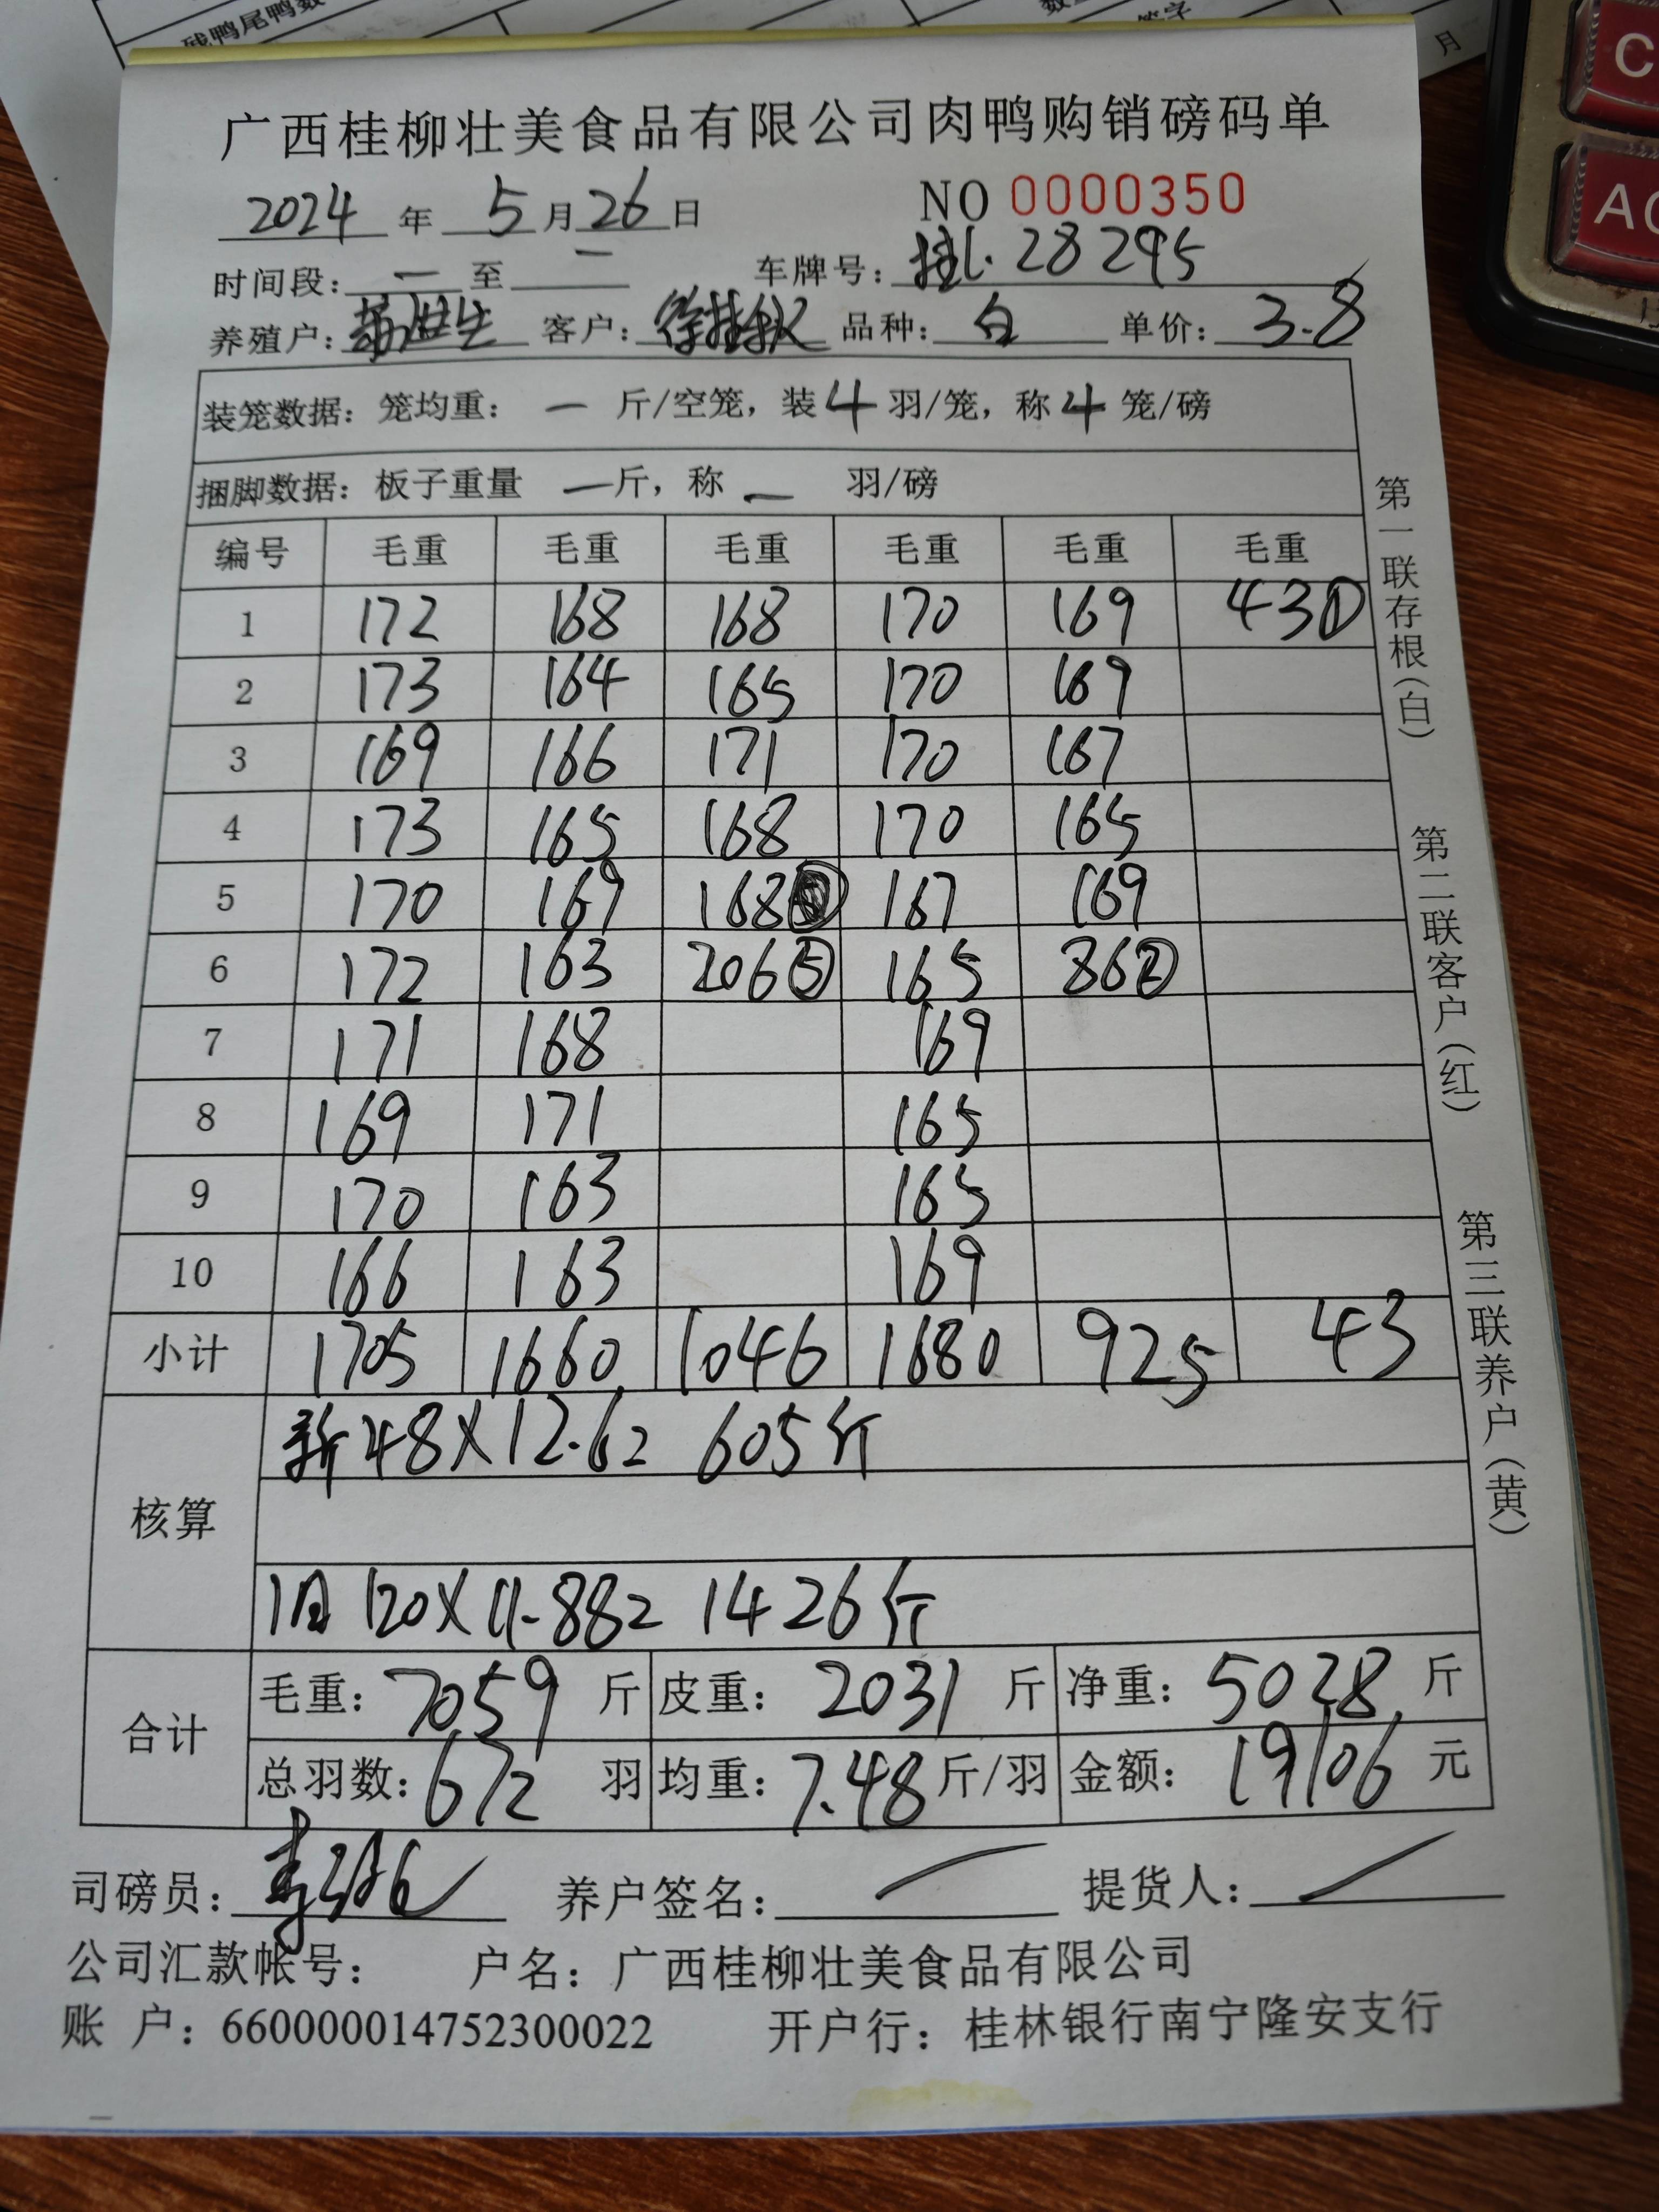 残鸭尾鸭数
月
C
AC
广西桂柳壮美食品有限公司肉鸭购销磅码单
2024 年 5 月 26 日 NO 0000350
时间段: 一 至 一 车牌号: 桂L·28295
养殖户: 客户: 徐桂秋 品种: 白 单价: 3.8
装笼数据: 笼均重: 一 斤/空笼, 装 4 羽/笼, 称 4 笼/磅
捆脚数据: 板子重量 一 斤, 称 一 羽/磅
编号 毛重 毛重 毛重 毛重 毛重 毛重
1 172 168 168 170 169 43①
2 173 164 165 170 169
3 169 166 171 170 167
4 173 165 168 170 165
5 170 169 168 167 169
6 172 163 206⑤ 165 86②
7 171 168 169
8 169 171 165
9 170 163 165
10 166 163 169
小计 1705 1660 1046 1680 925 43
核算
新48×12.6= 605斤
旧120×11.88= 1426斤
合计
毛重: 7059 斤 皮重: 2031 斤 净重: 5028 斤
总羽数: 672 羽 均重: 7.48 斤/羽 金额: 19106 元
司磅员: 养户签名: 提货人:
公司汇款帐号: 户名: 广西桂柳壮美食品有限公司
账 户: 660000014752300022 开户行: 桂林银行南宁隆安支行
第一联存根(白)
第二联客户(红)
第三联养户(黄)